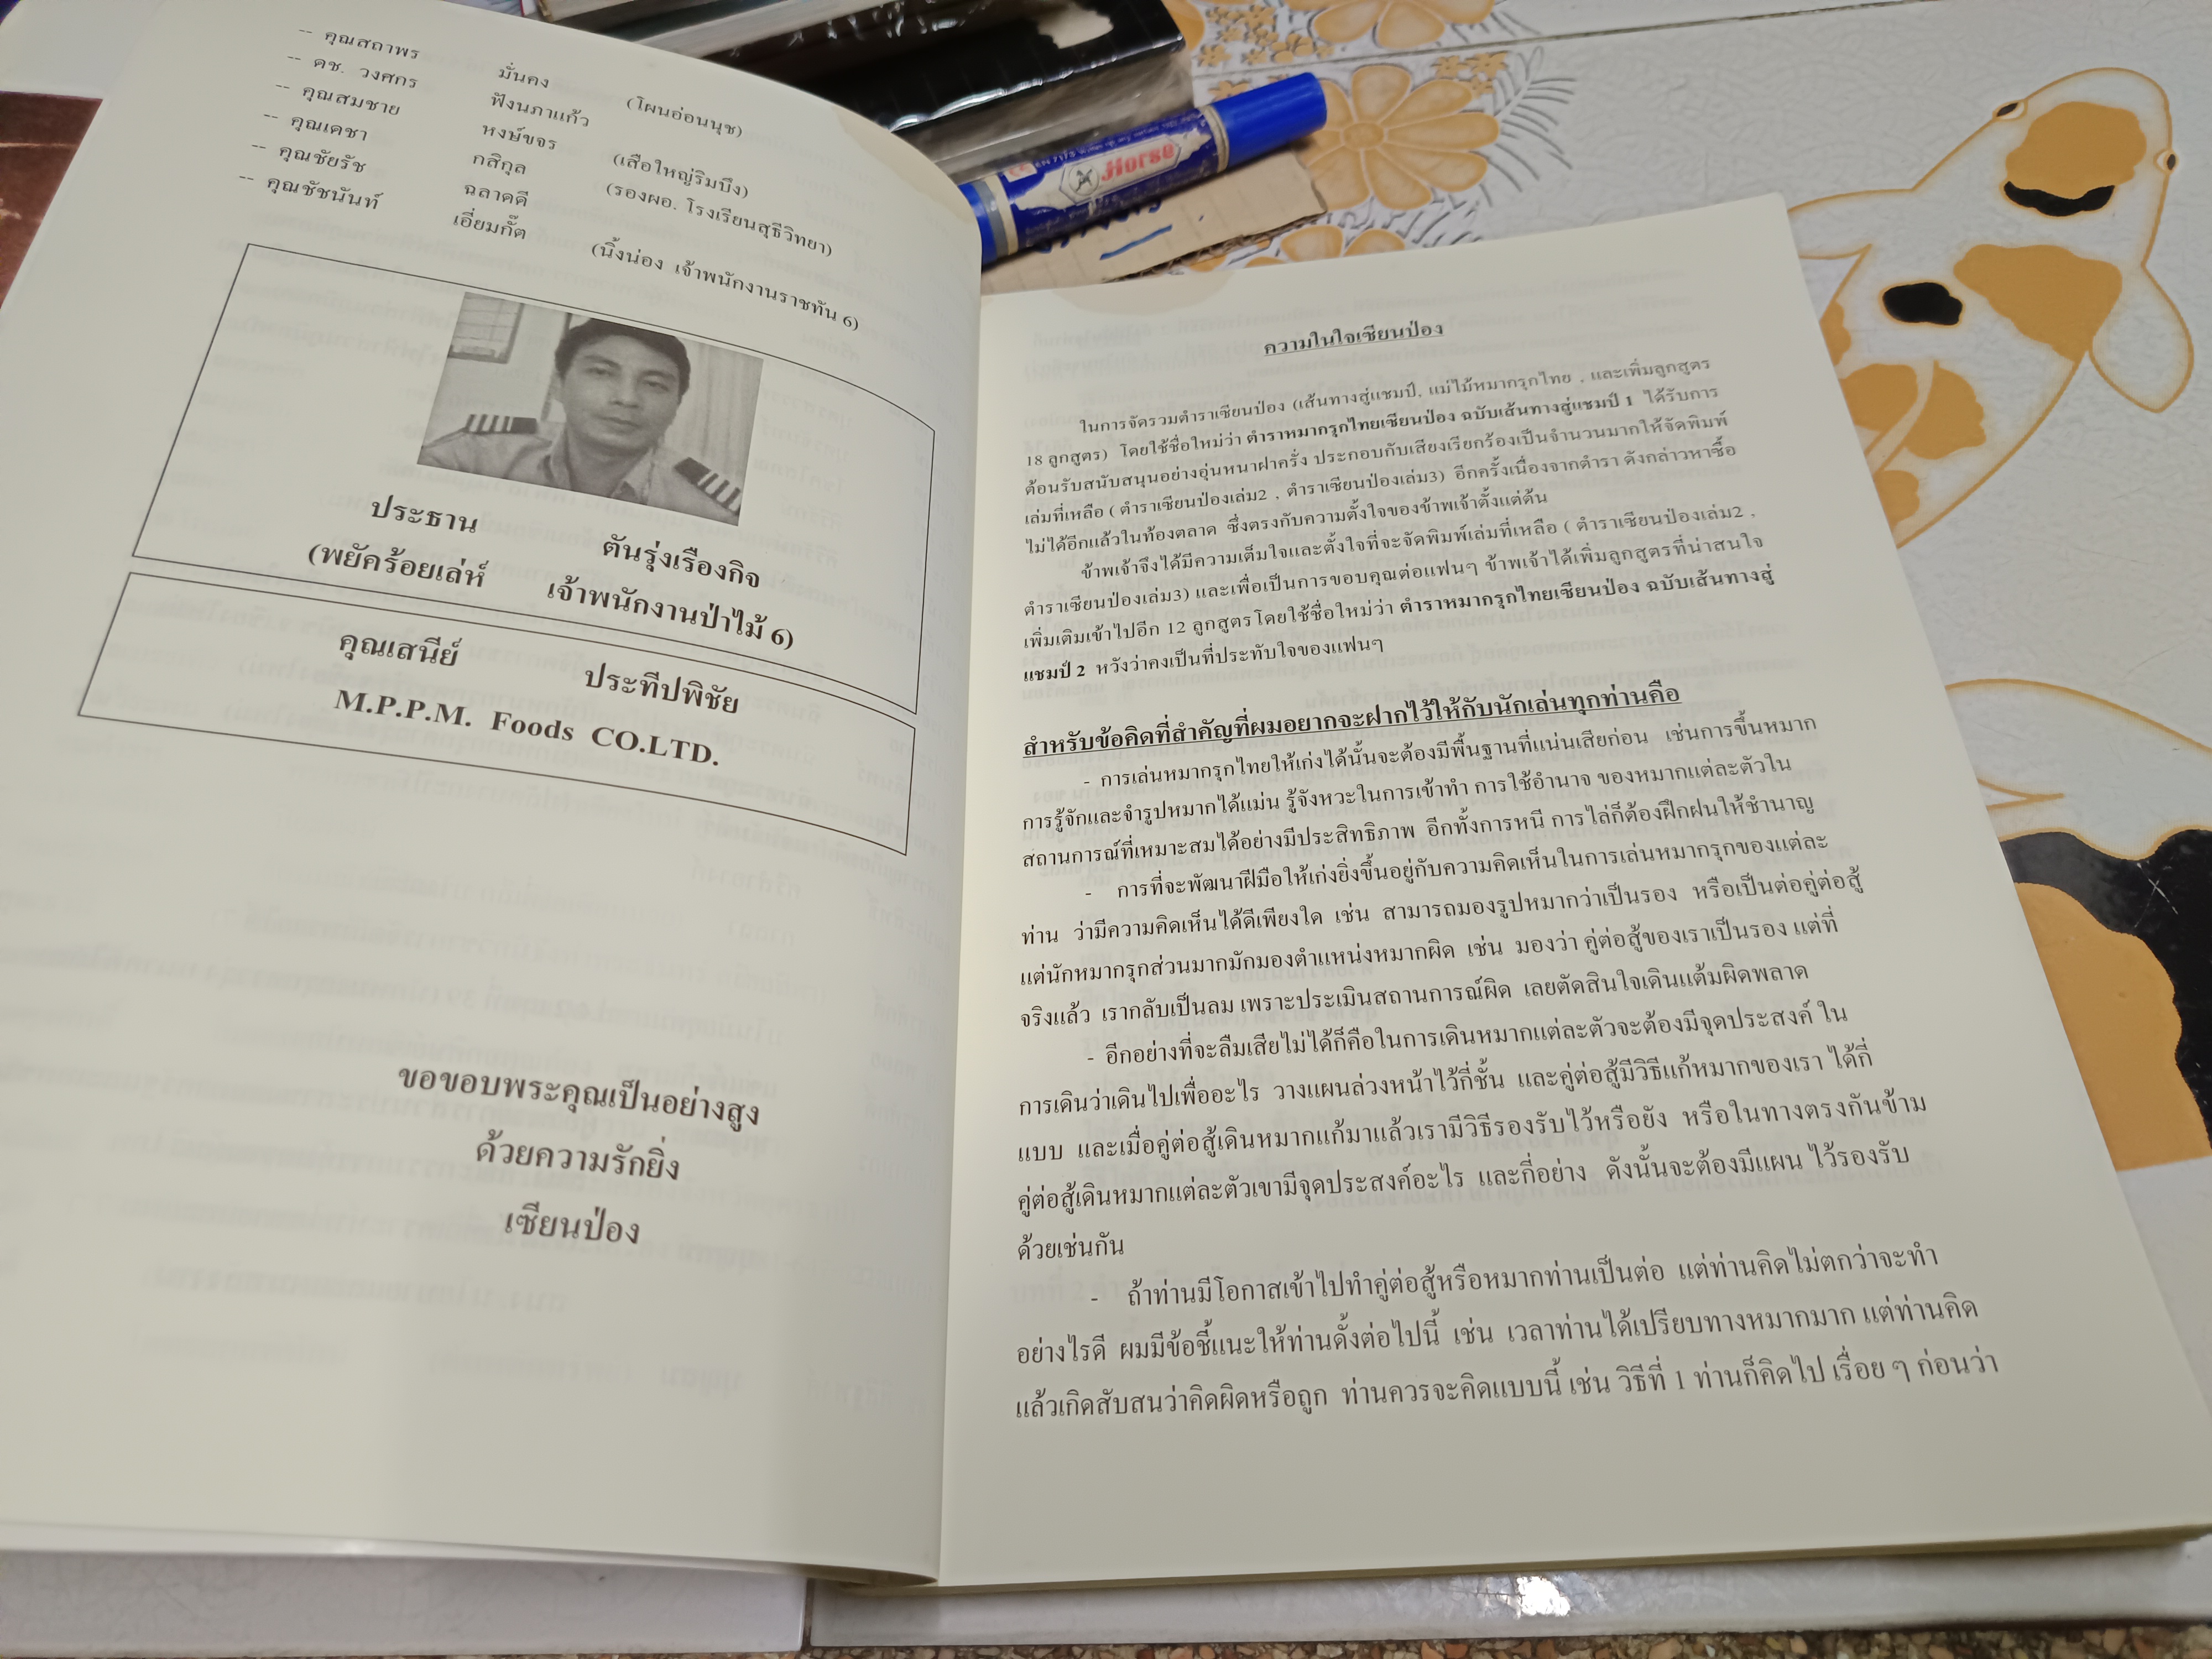 -- คุณสถาพร มั่นคง (โผนอ่อนนุช)
-- ดช. วงศกร ฟังนภาแก้ว
-- คุณสมชาย หงษ์ขจร (เสือใหญ่ริมบึง)
-- คุณเดชา กสิกุล (รองผอ. โรงเรียนสุธีวิทยา)
-- คุณชัยรัช ฉลาดดี
-- คุณชัชนันท์ เอี่ยมกั๊ต (นิ้งน่อง เจ้าพนักงานราชทัน 6)
ประธาน ตันรุ่งเรืองกิจ
(พยัคร้อยเล่ห์ เจ้าพนักงานป่าไม้ 6)
คุณเสนีย์ ประทีปพิชัย
M.P.P.M. Foods CO.LTD.
ขอขอบพระคุณเป็นอย่างสูง
ด้วยความรักยิ่ง
เซียนป่อง
Horse
ความในใจเซียนป่อง
ในการจัดรวมตำราเซียนป่อง (เส้นทางสู่แชมป์, แม่ไม้หมากรุกไทย , และเพิ่มลูกสูตร
18 ลูกสูตร) โดยใช้ชื่อใหม่ว่า ตำราหมากรุกไทยเซียนป่อง ฉบับเส้นทางสู่แชมป์ 1 ได้รับการ
ต้อนรับสนับสนุนอย่างอุ่นหนาฝาครั่ง ประกอบกับเสียงเรียกร้องเป็นจำนวนมากให้จัดพิมพ์
เล่มที่เหลือ ( ตำราเซียนป่องเล่ม2 , ตำราเซียนป่องเล่ม3) อีกครั้งเนื่องจากตำรา ดังกล่าวหาซื้อ
ไม่ได้อีกแล้วในท้องตลาด ซึ่งตรงกับความตั้งใจของข้าพเจ้าตั้งแต่ต้น
ข้าพเจ้าจึงได้มีความเต็มใจและตั้งใจที่จะจัดพิมพ์เล่มที่เหลือ ( ตำราเซียนป่องเล่ม2 ,
ตำราเซียนป่องเล่ม3) และเพื่อเป็นการขอบคุณต่อแฟนๆ ข้าพเจ้าได้เพิ่มลูกสูตรที่น่าสนใจ
เพิ่มเติมเข้าไปอีก 12 ลูกสูตร โดยใช้ชื่อใหม่ว่า ตำราหมากรุกไทยเซียนป่อง ฉบับเส้นทางสู่
แชมป์ 2 หวังว่าคงเป็นที่ประทับใจของแฟนๆ
สำหรับข้อคิดที่สำคัญที่ผมอยากจะฝากไว้ให้กับนักเล่นทุกท่านคือ
- การเล่นหมากรุกไทยให้เก่งได้นั้นจะต้องมีพื้นฐานที่แน่นเสียก่อน เช่นการขึ้นหมาก
การรู้จักและจำรูปหมากได้แม่น รู้จังหวะในการเข้าทำ การใช้อำนาจ ของหมากแต่ละตัวใน
สถานการณ์ที่เหมาะสมได้อย่างมีประสิทธิภาพ อีกทั้งการหนี การไล่ก็ต้องฝึกฝนให้ชำนาญ
- การที่จะพัฒนาฝีมือให้เก่งยิ่งขึ้นอยู่กับความคิดเห็นในการเล่นหมากรุกของแต่ละ
ท่าน ว่ามีความคิดเห็นได้ดีเพียงใด เช่น สามารถมองรูปหมากว่าเป็นรอง หรือเป็นต่อคู่ต่อสู้
แต่นักหมากรุกส่วนมากมักมองตำแหน่งหมากผิด เช่น มองว่า คู่ต่อสู้ของเราเป็นรอง แต่ที่
จริงแล้ว เรากลับเป็นลม เพราะประเมินสถานการณ์ผิด เลยตัดสินใจเดินแต้มผิดพลาด
- อีกอย่างที่จะลืมเสียไม่ได้ก็คือในการเดินหมากแต่ละตัวจะต้องมีจุดประสงค์ ใน
การเดินว่าเดินไปเพื่ออะไร วางแผนล่วงหน้าไว้กี่ชั้น และคู่ต่อสู้มีวิธีแก้หมากของเรา ได้กี่
แบบ และเมื่อคู่ต่อสู้เดินหมากแก้มาแล้วเรามีวิธีรองรับไว้หรือยัง หรือในทางตรงกันข้าม
คู่ต่อสู้เดินหมากแต่ละตัวเขามีจุดประสงค์อะไร และกี่อย่าง ดังนั้นจะต้องมีแผน ไว้รองรับ
ด้วยเช่นกัน
- ถ้าท่านมีโอกาสเข้าไปทำคู่ต่อสู้หรือหมากท่านเป็นต่อ แต่ท่านคิดไม่ตกว่าจะทำ
อย่างไรดี ผมมีข้อชี้แนะให้ท่านดั้งต่อไปนี้ เช่น เวลาท่านได้เปรียบทางหมากมาก แต่ท่านคิด
แล้วเกิดสับสนว่าคิดผิดหรือถูก ท่านควรจะคิดแบบนี้ เช่น วิธีที่ 1 ท่านก็คิดไป เรื่อย ๆ ก่อนว่า